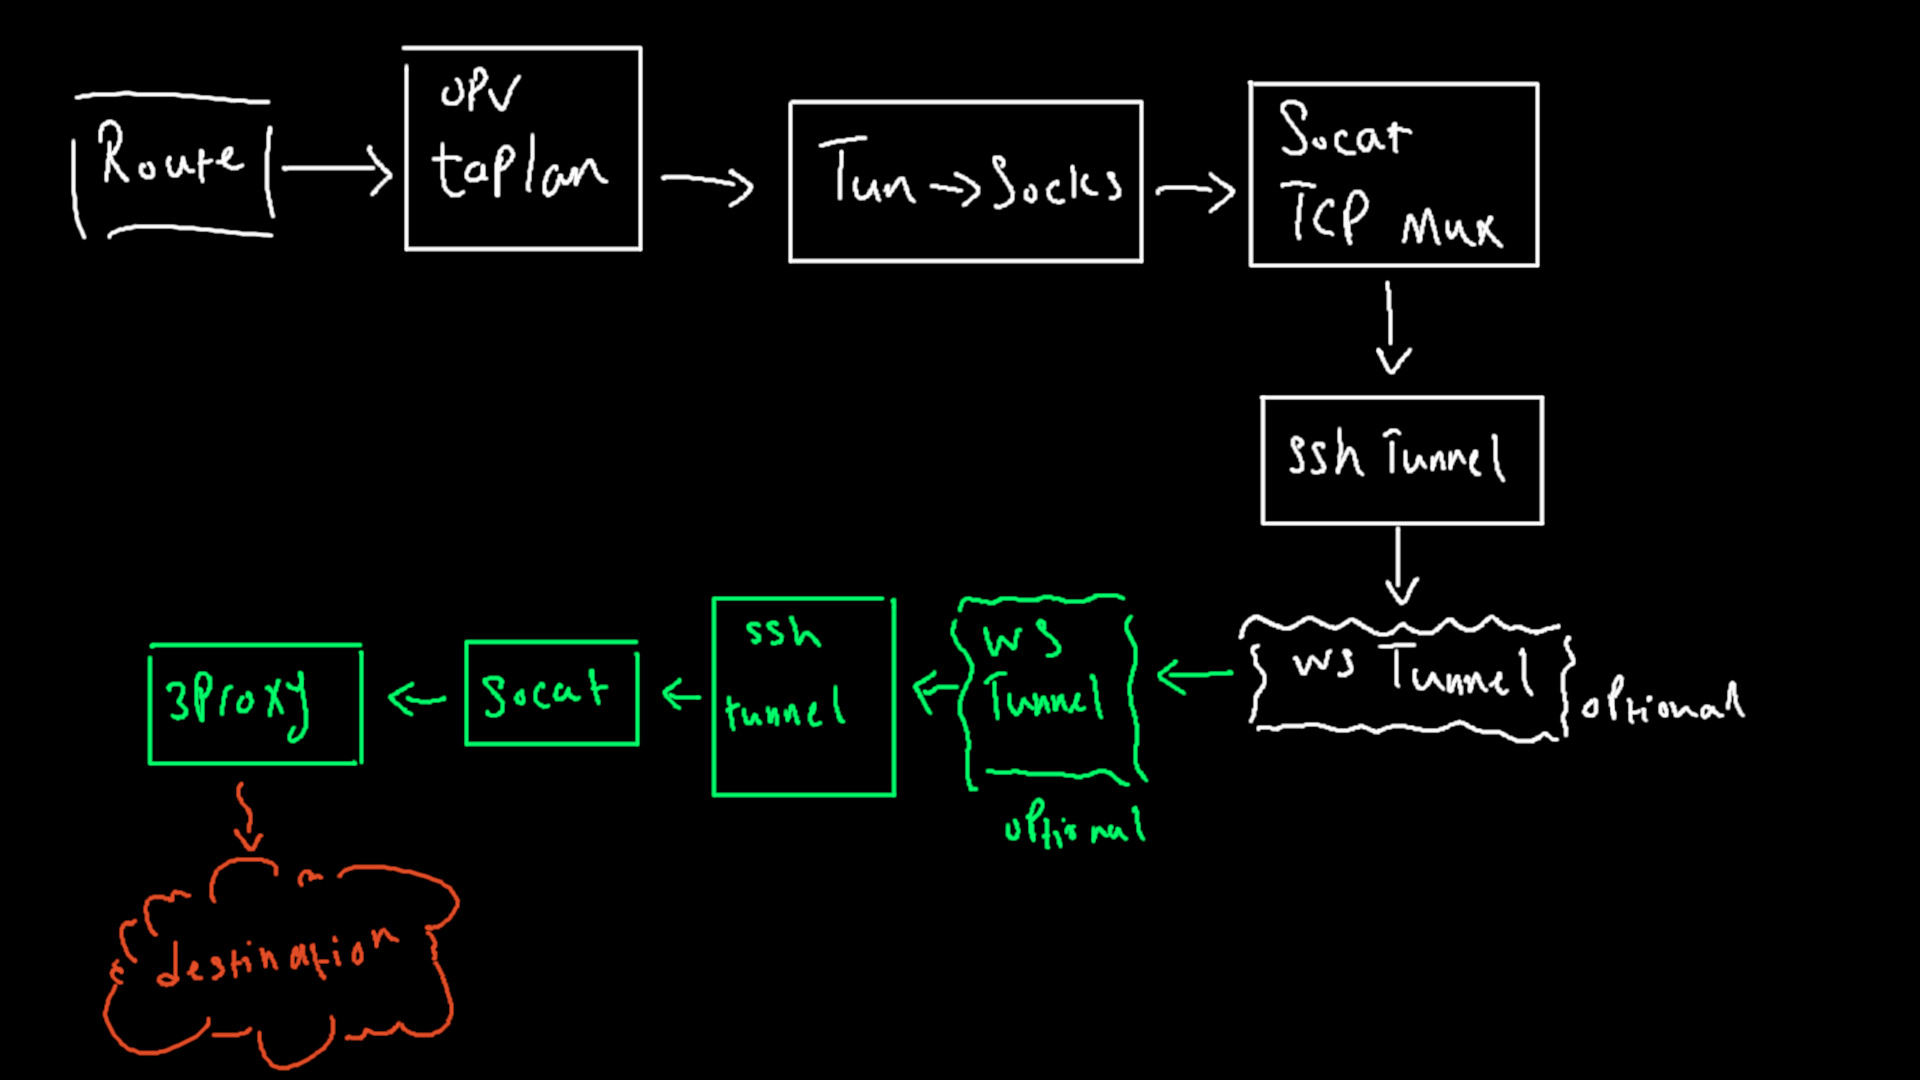 Route
OPV
taplan
Tun → Socks
Socat
TCP Mux
ssh Tunnel
WS Tunnel
optional
WS
Tunnel
optional
ssh
tunnel
Socat
3Proxy
destination